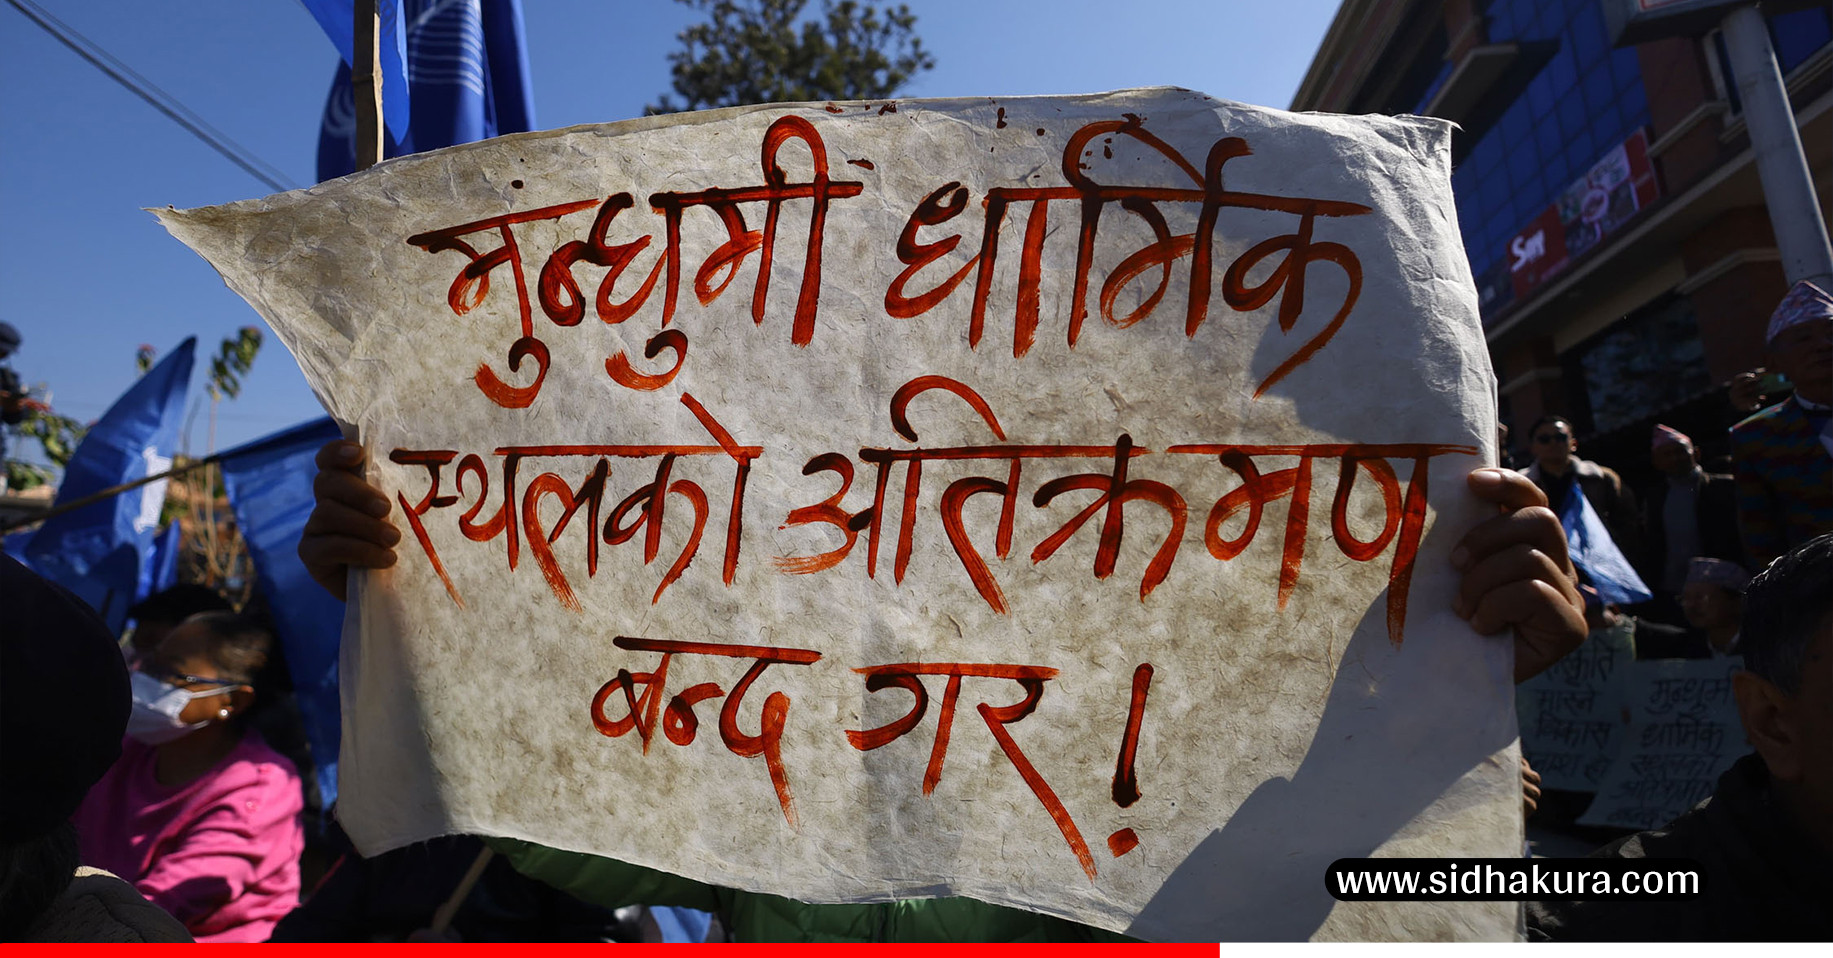 मुन्धुमी धार्मिक
स्थलको अतिक्रमण
बन्द गर!
मारने
विकास
मुन्धुमी
धार्मिक
स्थलको
अतिक्रमण
www.sidhakura.com